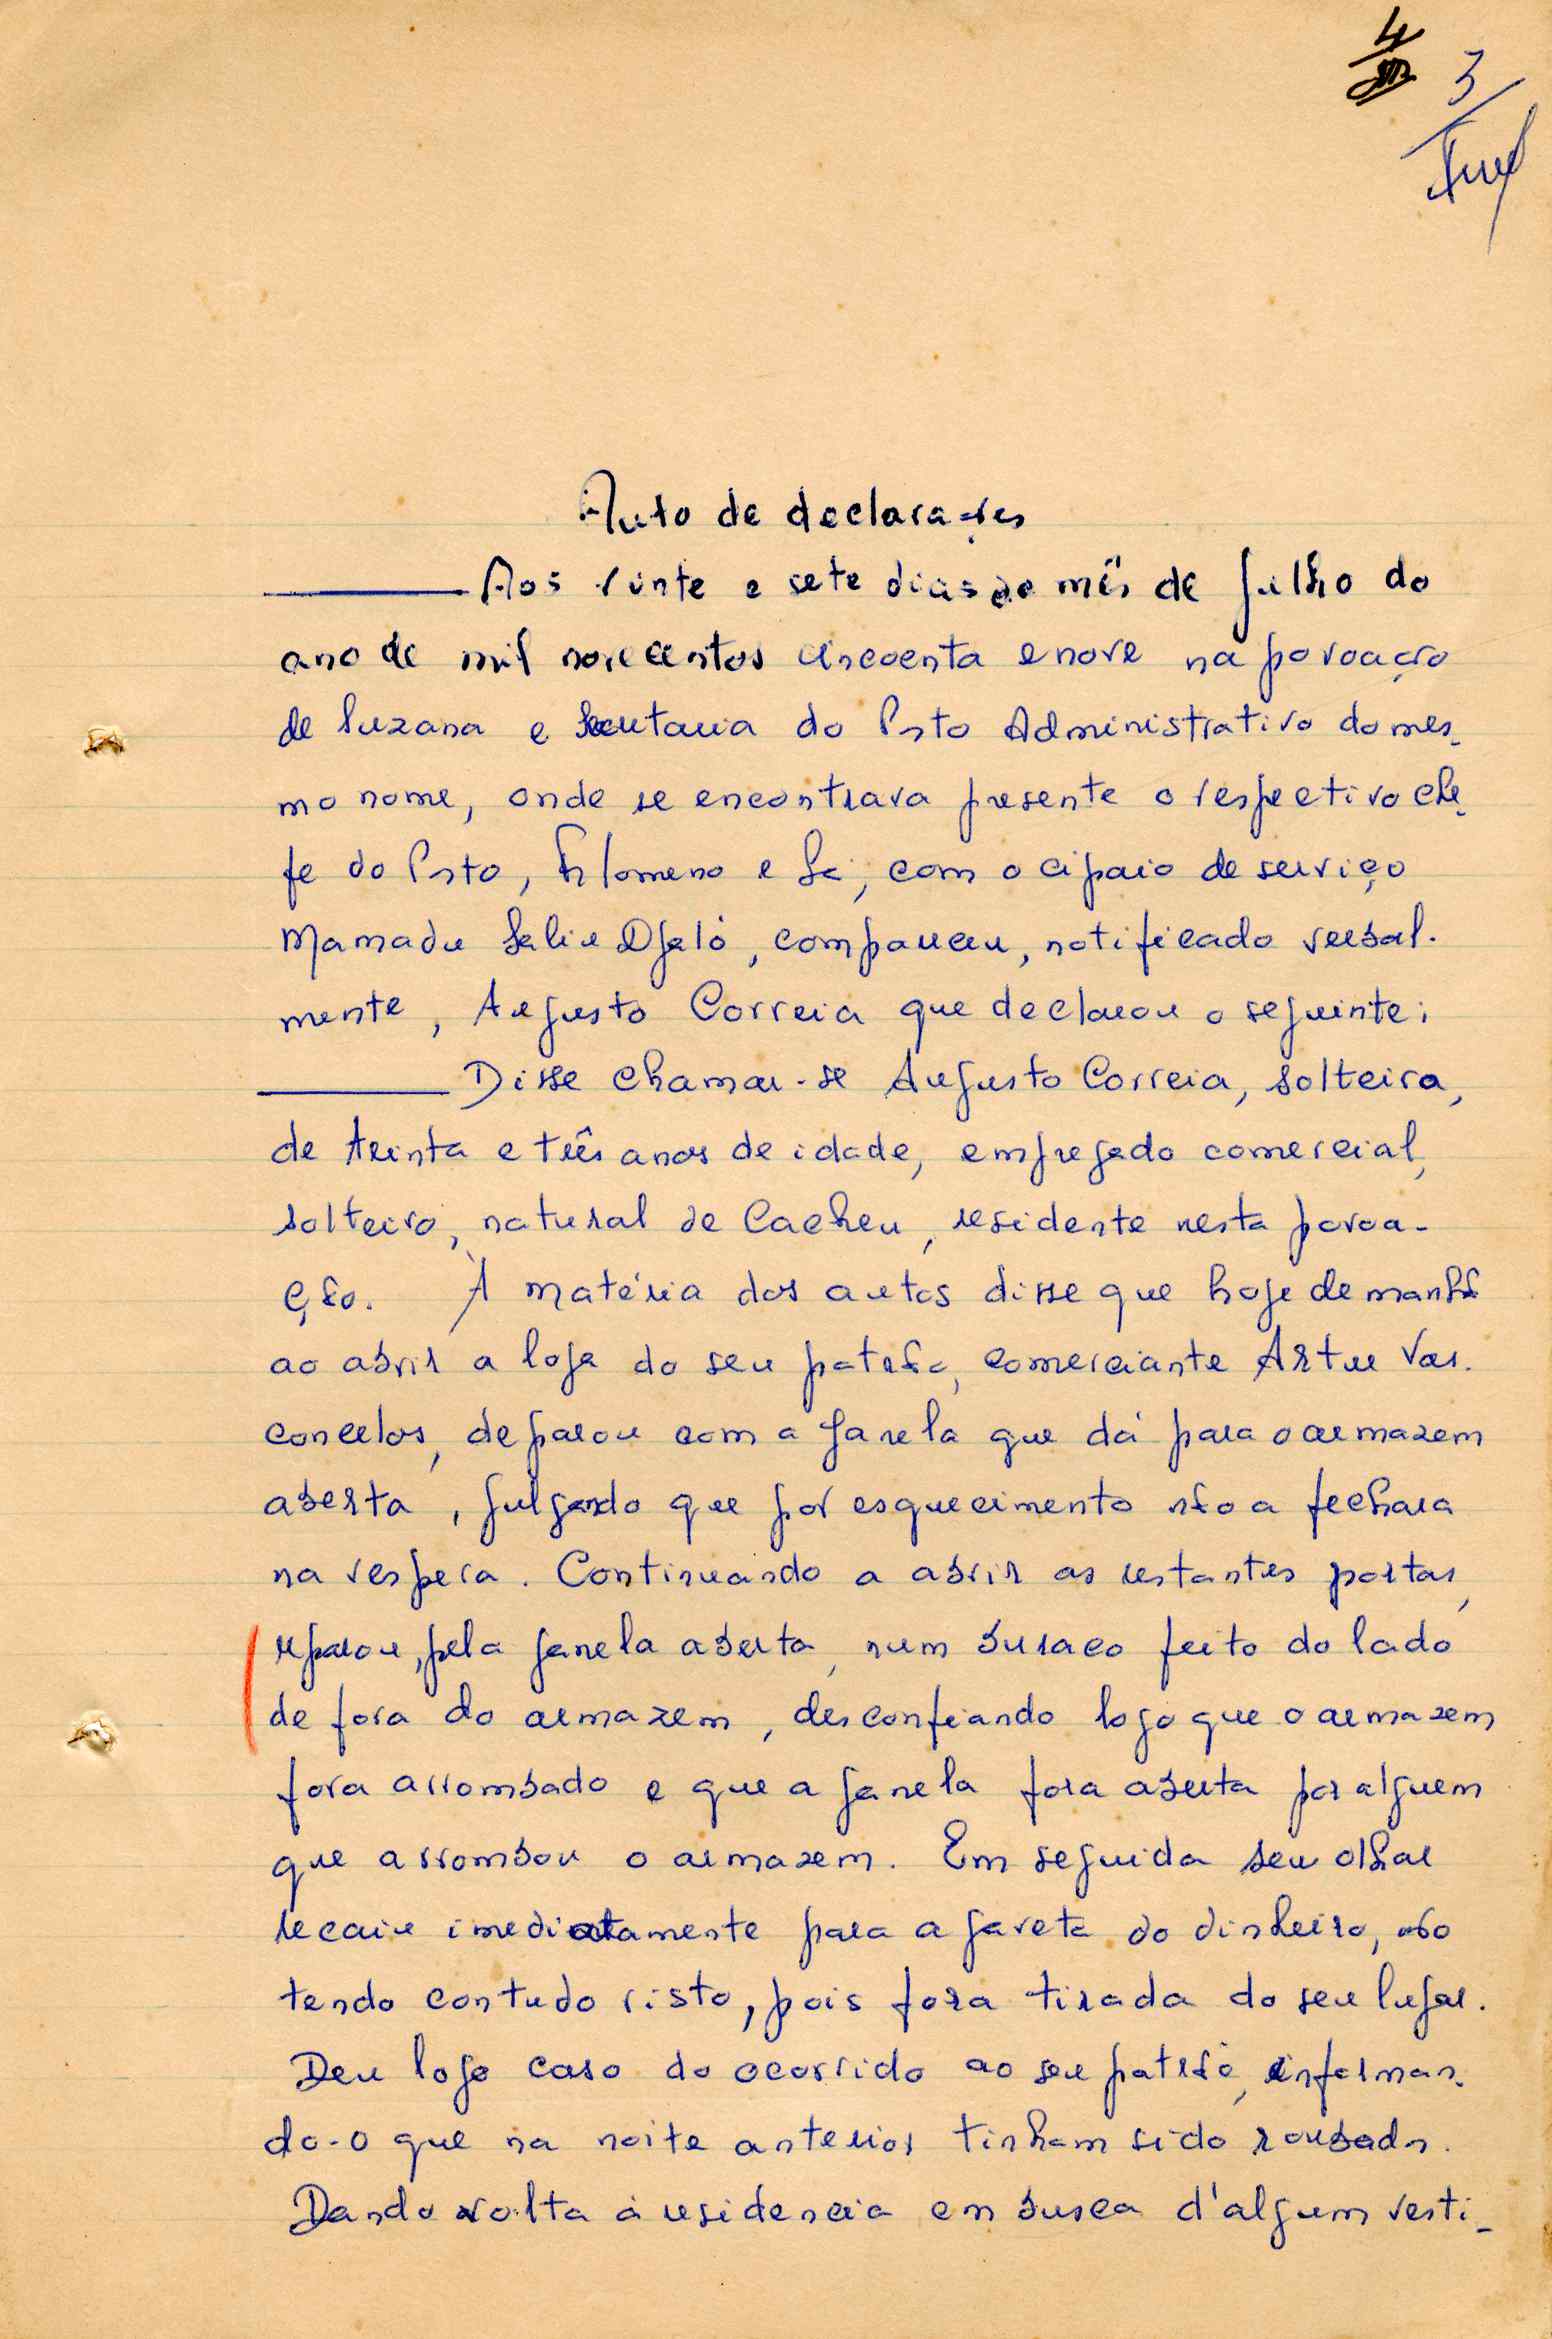 4
3
Auto de declarações
Aos vinte e sete dias do mês de Julho do
ano de mil novecentos cincoenta e nove na povoação
de Suzana e Secretaria do Posto Administrativo do mes-
mo nome, onde se encontrava presente o respectivo che-
fe do Posto, Filomeno e Sá, com o cipaio de serviço
Mamadu Saliu Djaló, compareceu, notificado verbal-
mente, Augusto Correia que declarou o seguinte:
Disse chamar-se Augusto Correia, solteiro,
de trinta e três anos de idade, empregado comercial,
solteiro, natural de Cacheu, residente nesta povoa-
ção. À matéria dos autos disse que hoje de manhã
ao abrir a loja do seu patrão, comerciante Artur Vas-
concelos, deparou com a janela que dá para o armazem
aberta, julgando que por esquecimento não a fechara
na vespera. Continuando a abrir as restantes portas,
reparou, pela janela aberta, num buraco feito do lado
de fora do armazem, desconfiando logo que o armazem
fora arrombado e que a janela fora aberta por alguem
que arrombou o armazem. Em seguida seu olhar
recaiu imediatamente para a gaveta do dinheiro, não
tendo contudo visto, pois fora tirada do seu lugar.
Deu logo caso do ocorrido ao seu patrão, informan-
do-o que na noite anterior tinham sido roubados.
Dando volta á residencia em busca d'algum vesti-